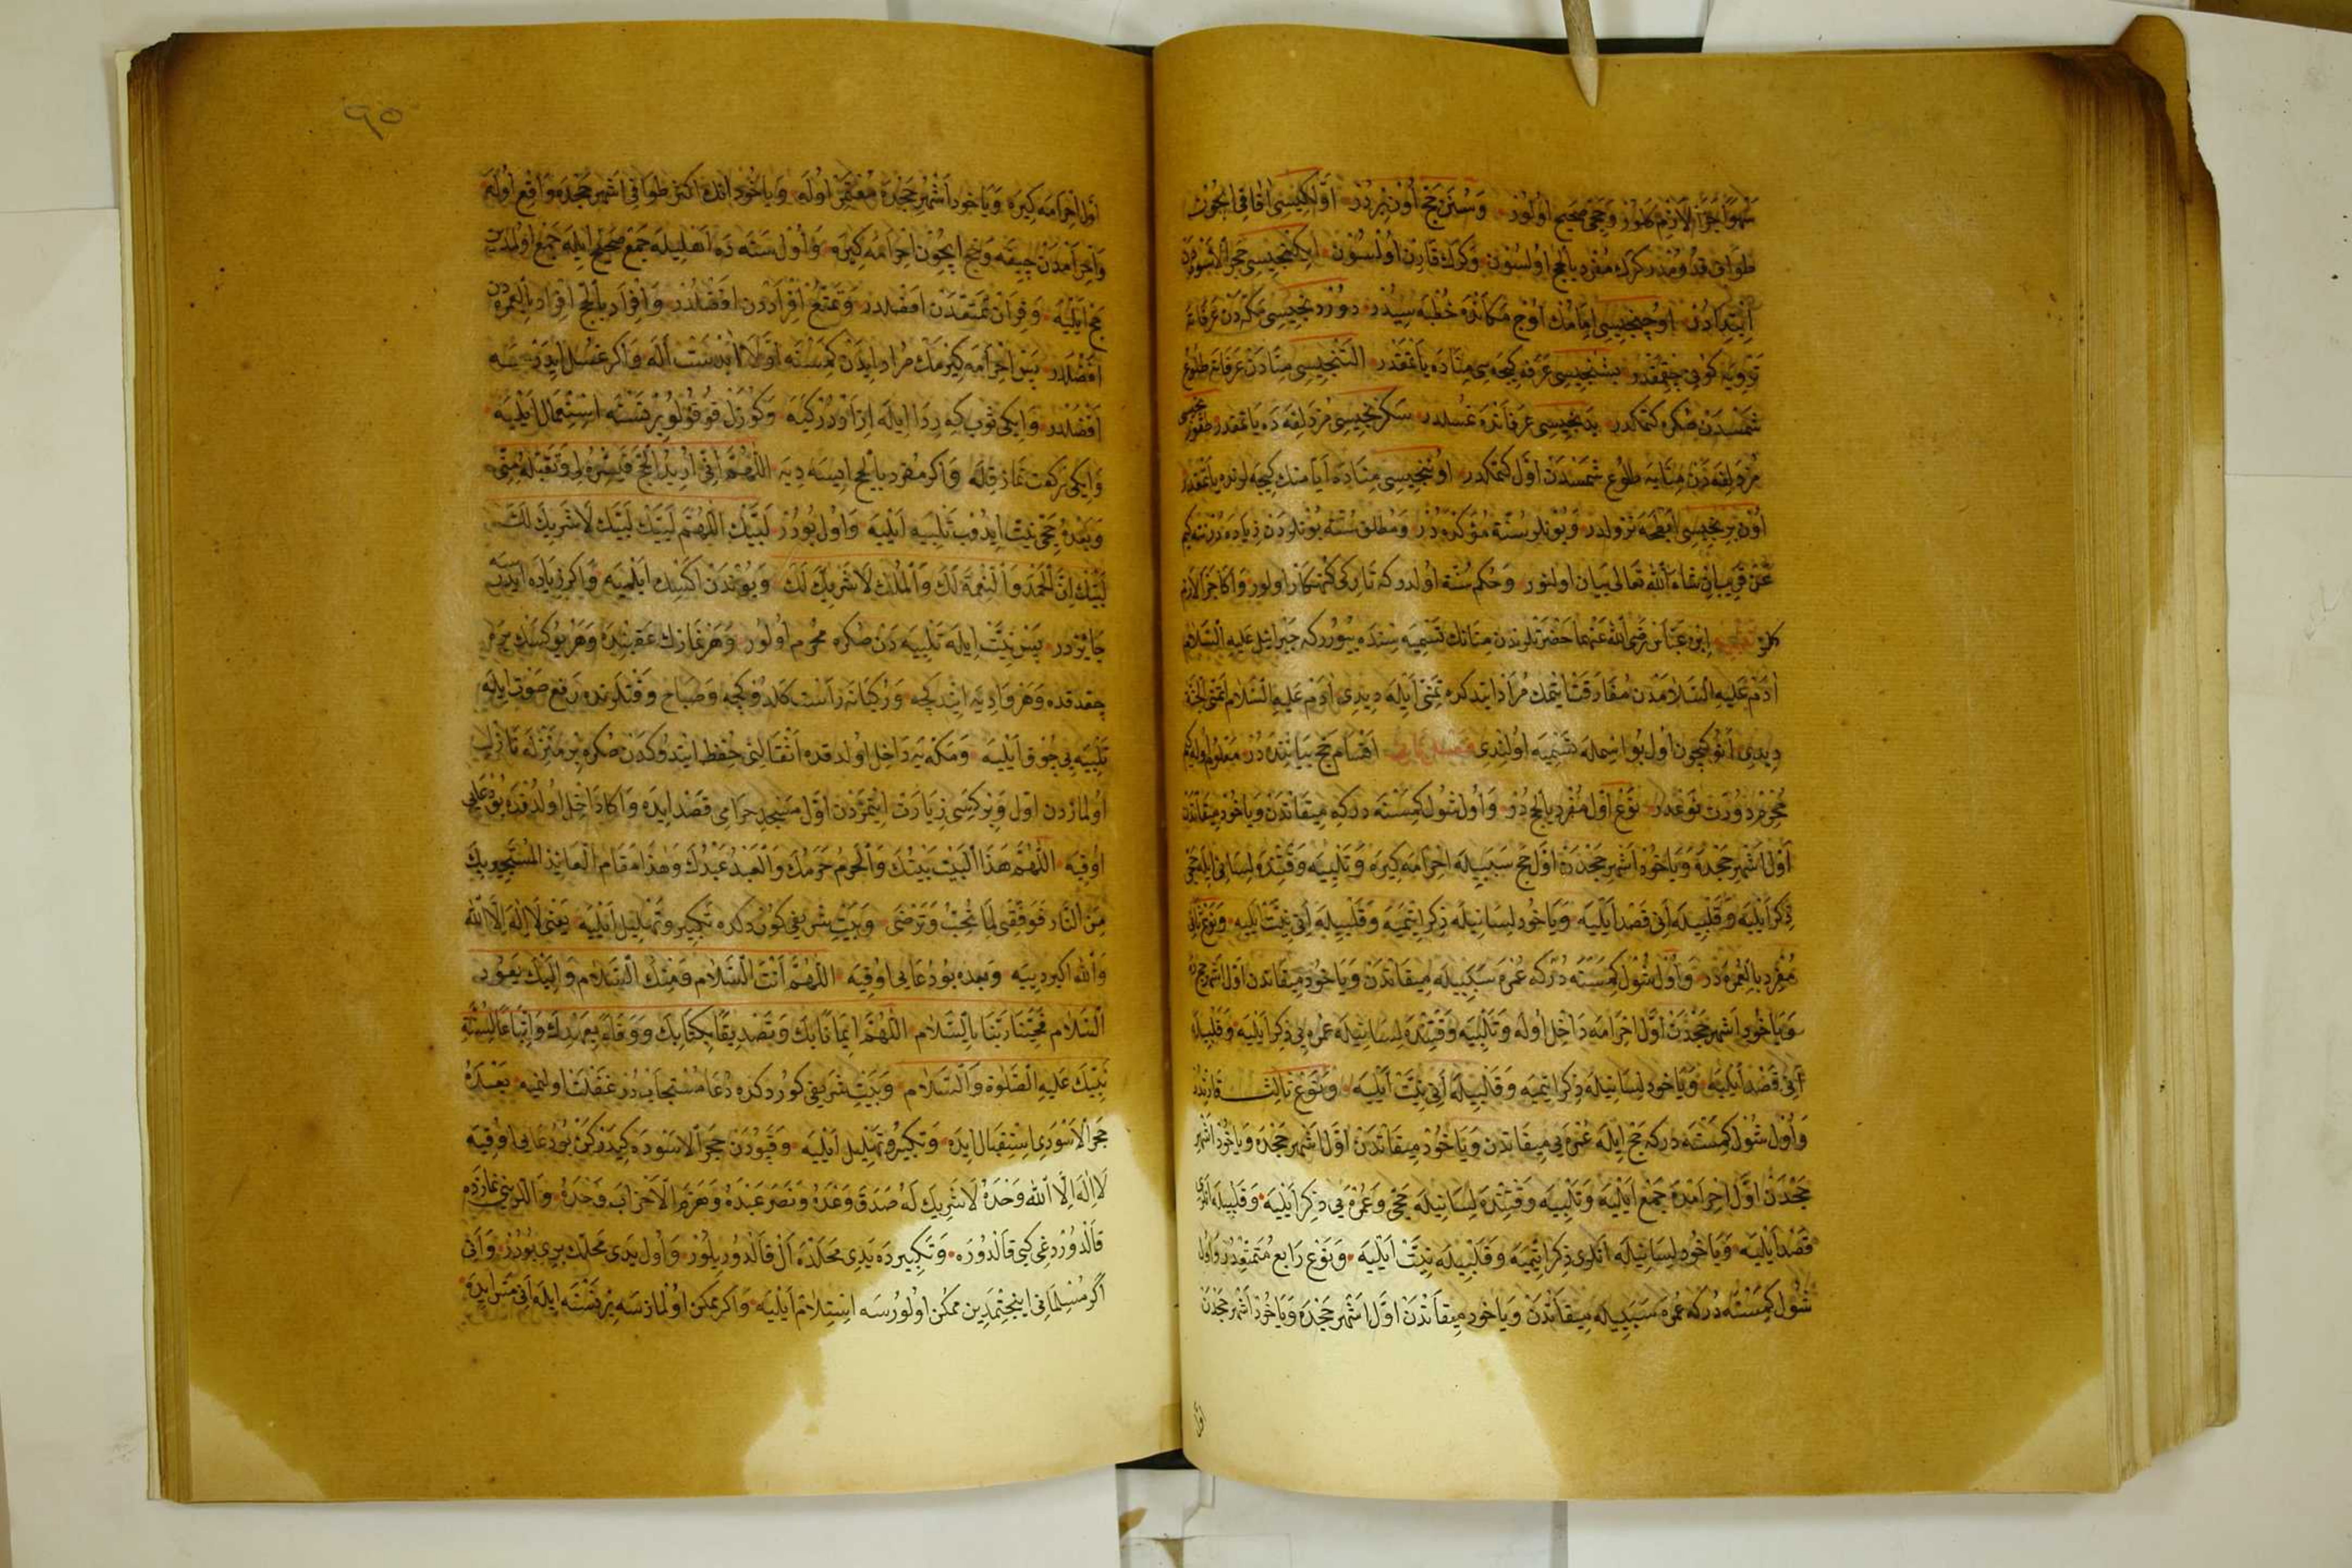 سهوًا جزا لازم كلور و حجى صحيح اولور وسنن حج اون بردر اولكيسى افاقى ايچون
طواف قدومدر كرك مفرد بالحج اولسون وكرك قارن اولسون ايكنجيسى حجر الاسوددن
ابتدادر اوچنجيسى امامك اوج مكانده خطبه سيدر دوردنجيسى مكه دن عرفاته
ترويه كونى چقمقدر بشنجيسى عرفه كيجه سى مناده ياتمقدر التنجيسى منادن عرفاته طلوع
شمسدن صكره كتمكدر يدنجيسى عرفاتده غسلدر سكزنجيسى مزدلفه ده ياتمقدر طقوزنجيسى
مزدلفه دن منايه طلوع شمسدن اول كتمكدر اوننجيسى مناده ايام منك كيجه لرنده ياتمقدر
اون برنجيسى ابطحه نزولدر وبونلر سنة مؤكده در ومطلق سنته بونلردن زياده در نته كيم
عن قريب ان شاء الله تعالى بيان اولنور وحكم سنة اولدر كه تاركى كنهكار اولور واكا جزا لازم
كلمز ابن عباس رضى الله عنهما حضرتلرندن منانك تسميه سنده بيورر كه جبرائيل عليه السلام
آدم عليه السلامدن مفارقت ايتمك مراد ايتدكده تمنى ايله ديدى آدم عليه السلام اتمنى الجنة
ديدى انوكچون اول بو اسمله تسميه اولندى اقسام حج بياننده در معلوم اوله كيم
محرم درت نوعدر نوع اول مفرد بالحج در واول شول كمسنه در كه ميقاتدن ويا خود ميقاتدن
اول اشهر حجده ويا خود اشهر حجدن اول حج سببيله احرامه كيره وتلبيه وقتنده لسانى ايله حجى
ذكر ايليه وقلبيله انى قصد ايليه ويا خود لسانيله ذكر ايتميه وقلبيله انى نيت ايليه ونوع ثانى
مفرد بالعمره در واول شول كمسنه در كه عمره سببيله ميقاتدن ويا خود ميقاتدن اول اشهر حجده
ويا خود اشهر حجدن اول احرامه داخل اوله وتلبيه وقتنده لسانيله عمره يى ذكر ايليه وقلبيله
انى قصد ايليه ويا خود لسانيله ذكر ايتميه وقلبيله انى نيت ايليه ونوع ثالث قارندر
واول شول كمسنه در كه حج ايله عمره يى ميقاتدن ويا خود ميقاتدن اول اشهر حجده ويا خود اشهر
حجدن اول احرامده جمع ايليه وتلبيه وقتنده لسانيله حجى وعمره يى ذكر ايليه وقلبيله انلرى
قصد ايليه ويا خود لسانيله انلرى ذكر ايتميه وقلبيله نيت ايليه ونوع رابع متمتعدر واول
شول كمسنه در كه عمره سببيله ميقاتدن ويا خود ميقاتدن اول اشهر حجده ويا خود اشهر حجدن
٩٥
اول احرامه كيره ويا خود اشهر حجده معتمر اوله ويا خود انك اكثر طوافى اشهر حجده واقع اوله
واحرامدن چيقه وحج ايچون احرامه كيره واول سنه ده اهليله جمع صحيح ايله جمع اولمدين
حج ايليه وقران تمتعدن افضلدر وتمتع افراددن افضلدر وافراد بالحج افراد بالعمره دن
افضلدر پس احرامه كيرمك مراد ايدن كمسنه اولا ابدست اله واكر غسل ايدرسه
افضلدر وايكى ثوب كه ردا ايله ازاردر كيه وكوزل قوقولو بر نسنه استعمال ايليه
وايكى ركعت نماز قله واكر مفرد بالحج ايسه ديه اللهم انى اريد الحج فيسره لى وتقبله منى
وبعده حجى نيت ايدوب تلبيه ايليه واول بودر لبيك اللهم لبيك لبيك لا شريك لك
لبيك ان الحمد والنعمة لك والملك لا شريك لك وبوندن اكسك ايلميه واكر زياده ايدرسه
جائزدر پس نيت ايله تلبيه دن صكره محرم اولور وهر نمازك عقبنده وهر يوكسك يره
چقدقده وهر واديه ايندكجه وركبانه راست كلدوكجه وصباح وقتلرنده رفع صوت ايله
تلبيه يى چوق ايليه ومكه يه داخل اولدقده اثقالنى حفظ ايتدوكدن صكره بر منزله نازل
اولمازدن اول وبر كسى زيارت ايتمزدن اول مسجد حرامى قصد ايده واكا داخل اولدقده بو دعايى
اوقيه اللهم هذا البيت بيتك والحرم حرمك والعبد عبدك وهذا مقام العائذ المستجير بك
من النار فوفقنى لما تحب وترضى وبيت شريفى كوردكده تكبير وتهليل ايليه يعنى لا اله الا الله
والله اكبر دييه وبعده بو دعايى اوقيه اللهم انت السلام ومنك السلام واليك يعود
السلام فحينا ربنا بالسلام اللهم ايمانا بك وتصديقا بكتابك ووفاء بعهدك واتباعا لسنة
نبيك عليه الصلوة والسلام وبيت شريفى كوردكده دعا مستجابدر غفلت اولنميه بعده
حجر الاسودى استقبال ايده وتكبير وتهليل ايليه وقپودن حجر الاسوده كيدركن بو دعايى اوقيه
لا اله الا الله وحده لا شريك له صدق وعده ونصر عبده وهزم الاحزاب وحده واللرينى نمازده
قالدوردغى كبى قالدوره وتكبيرده يدى محلده ال قالدوريلور واول يدى محلك برى بودر وانى
اكر مسلمانى اينجتمدين ممكن اولورسه استلام ايليه واكر ممكن اولمازسه بر نسنه ايله انى مس ايده